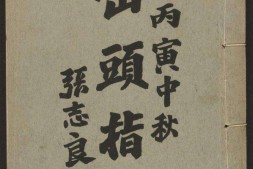 丙寅中秋
頭指
張志良